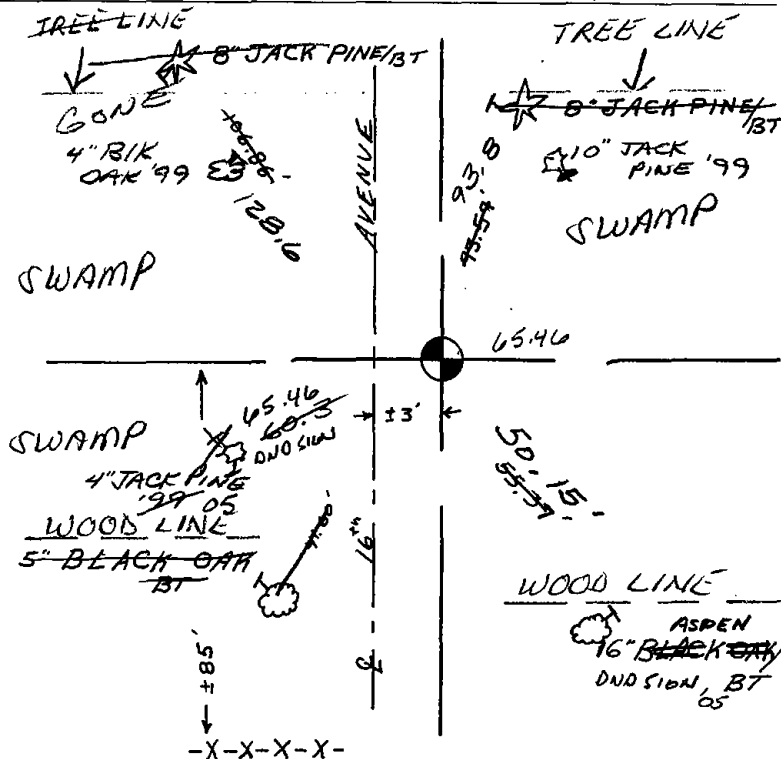 TREE LINE
8" JACK PINE/BT
GONE
4" BlK
OAK '99
106.86'
128.6
SWAMP
AVENUE
TREE LINE
8" JACK PINE/
BT
10" JACK
PINE '99
93.8
SWAMP
65.46
65.46
60.3
DND SIGN
±3'
SWAMP
4" JACK PINE
'99 05
WOOD LINE
5" BLACK OAK
BT
50.15'
55.37'
16th
℄
±85'
-X-X-X-X-
WOOD LINE
ASPEN
16" BLACK OAK/
DND SIGN, BT
05